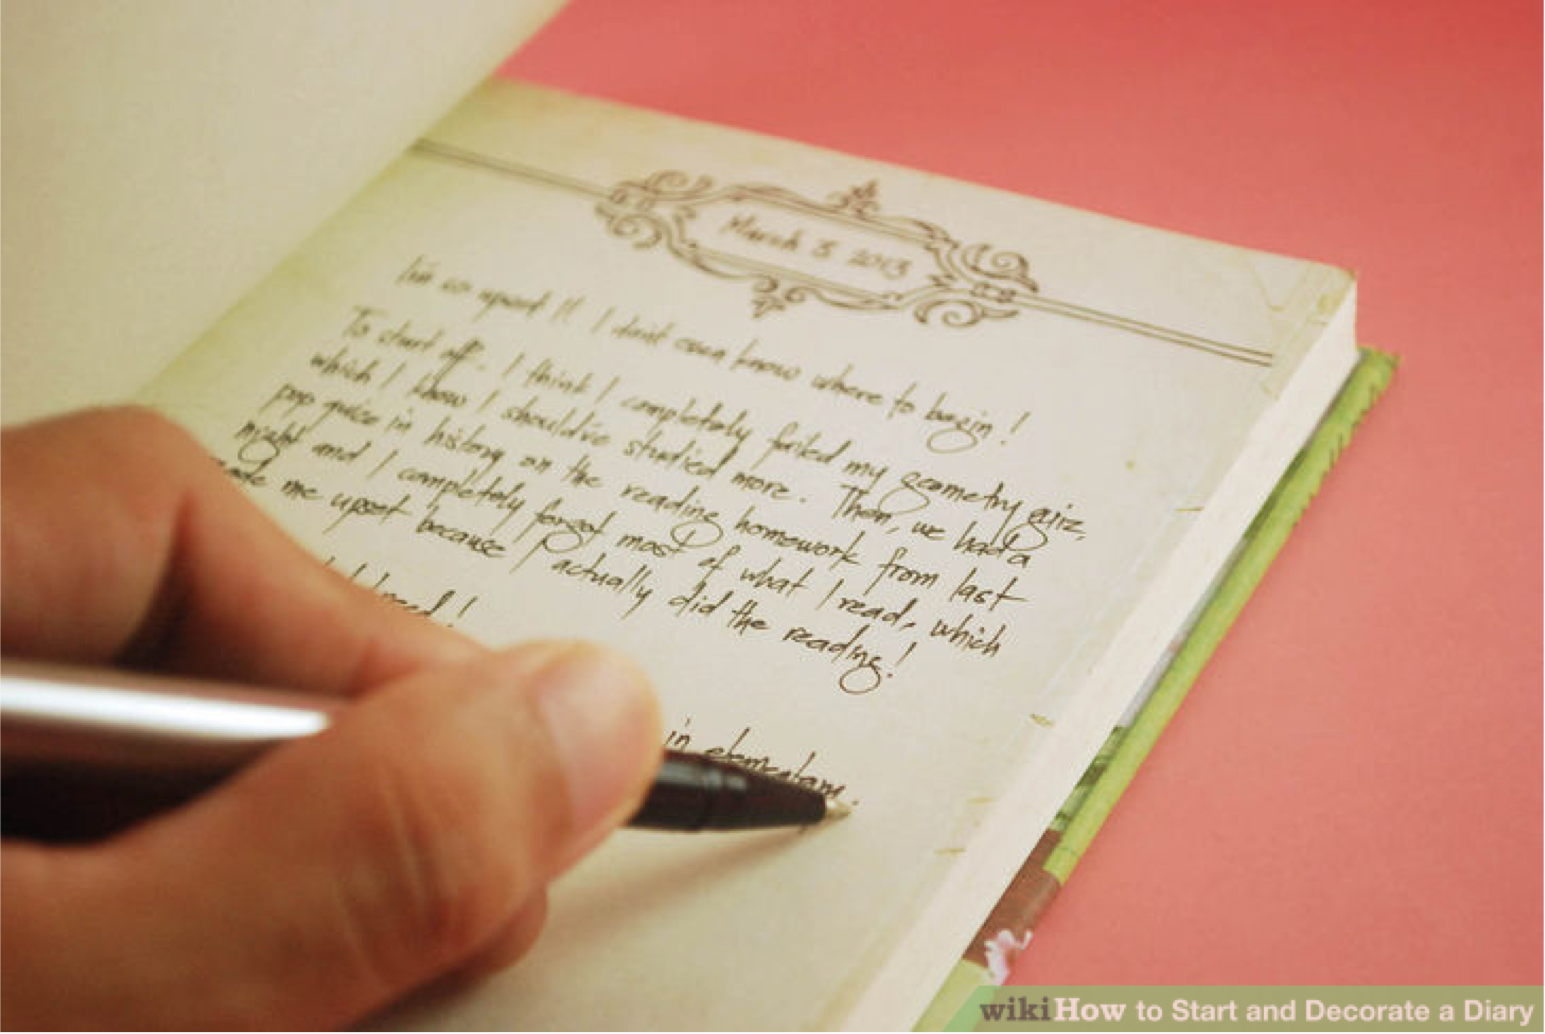 March 5 2013
I'm so upset!! I don't even know where to begin!
To start off, I think I completely failed my geometry quiz,
which I know I should've studied more. Then, we had a
pop quice in history on the reading homework from last
night and I completely forgot most of what I read, which
made me upset because I actually did the reading!
in elementary.
wikiHow to Start and Decorate a Diary